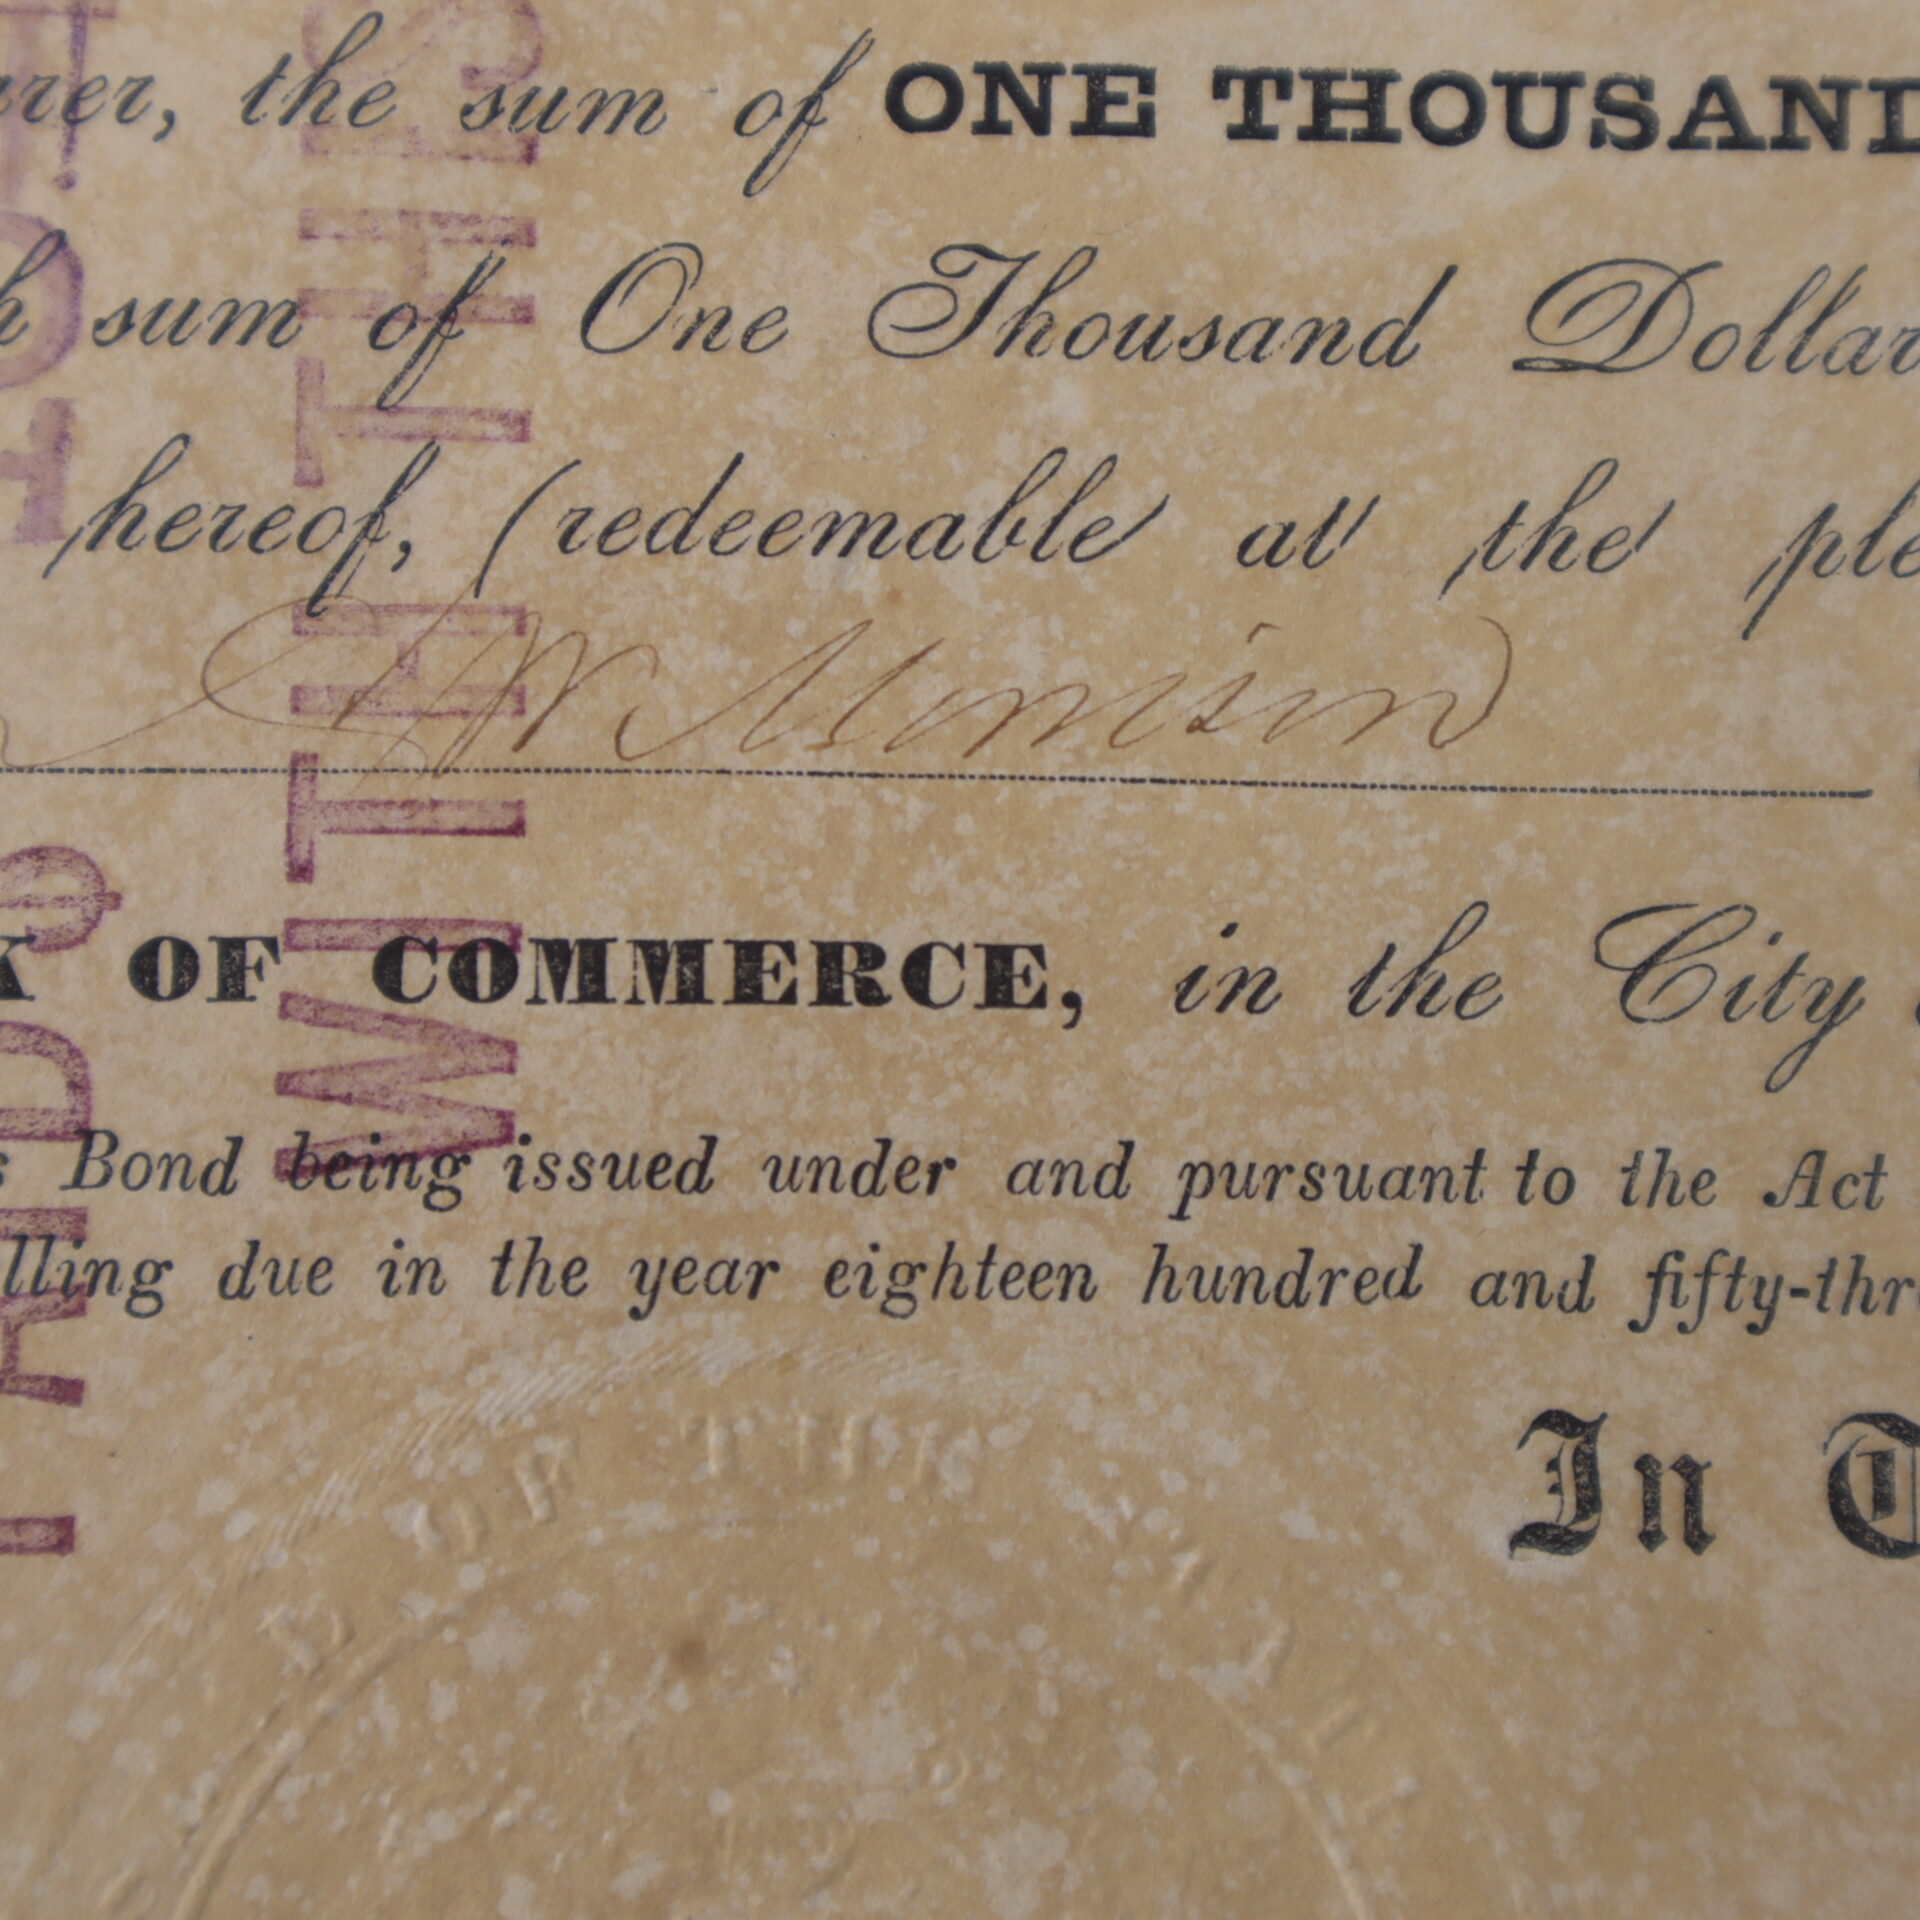 arer, the sum of ONE THOUSAND
h sum of One Thousand Dollar
hereof, (redeemable at the ple
K OF COMMERCE, in the City
s Bond being issued under and pursuant to the Act
lling due in the year eighteen hundred and fifty-thr
In T
WITH THS
OF THE